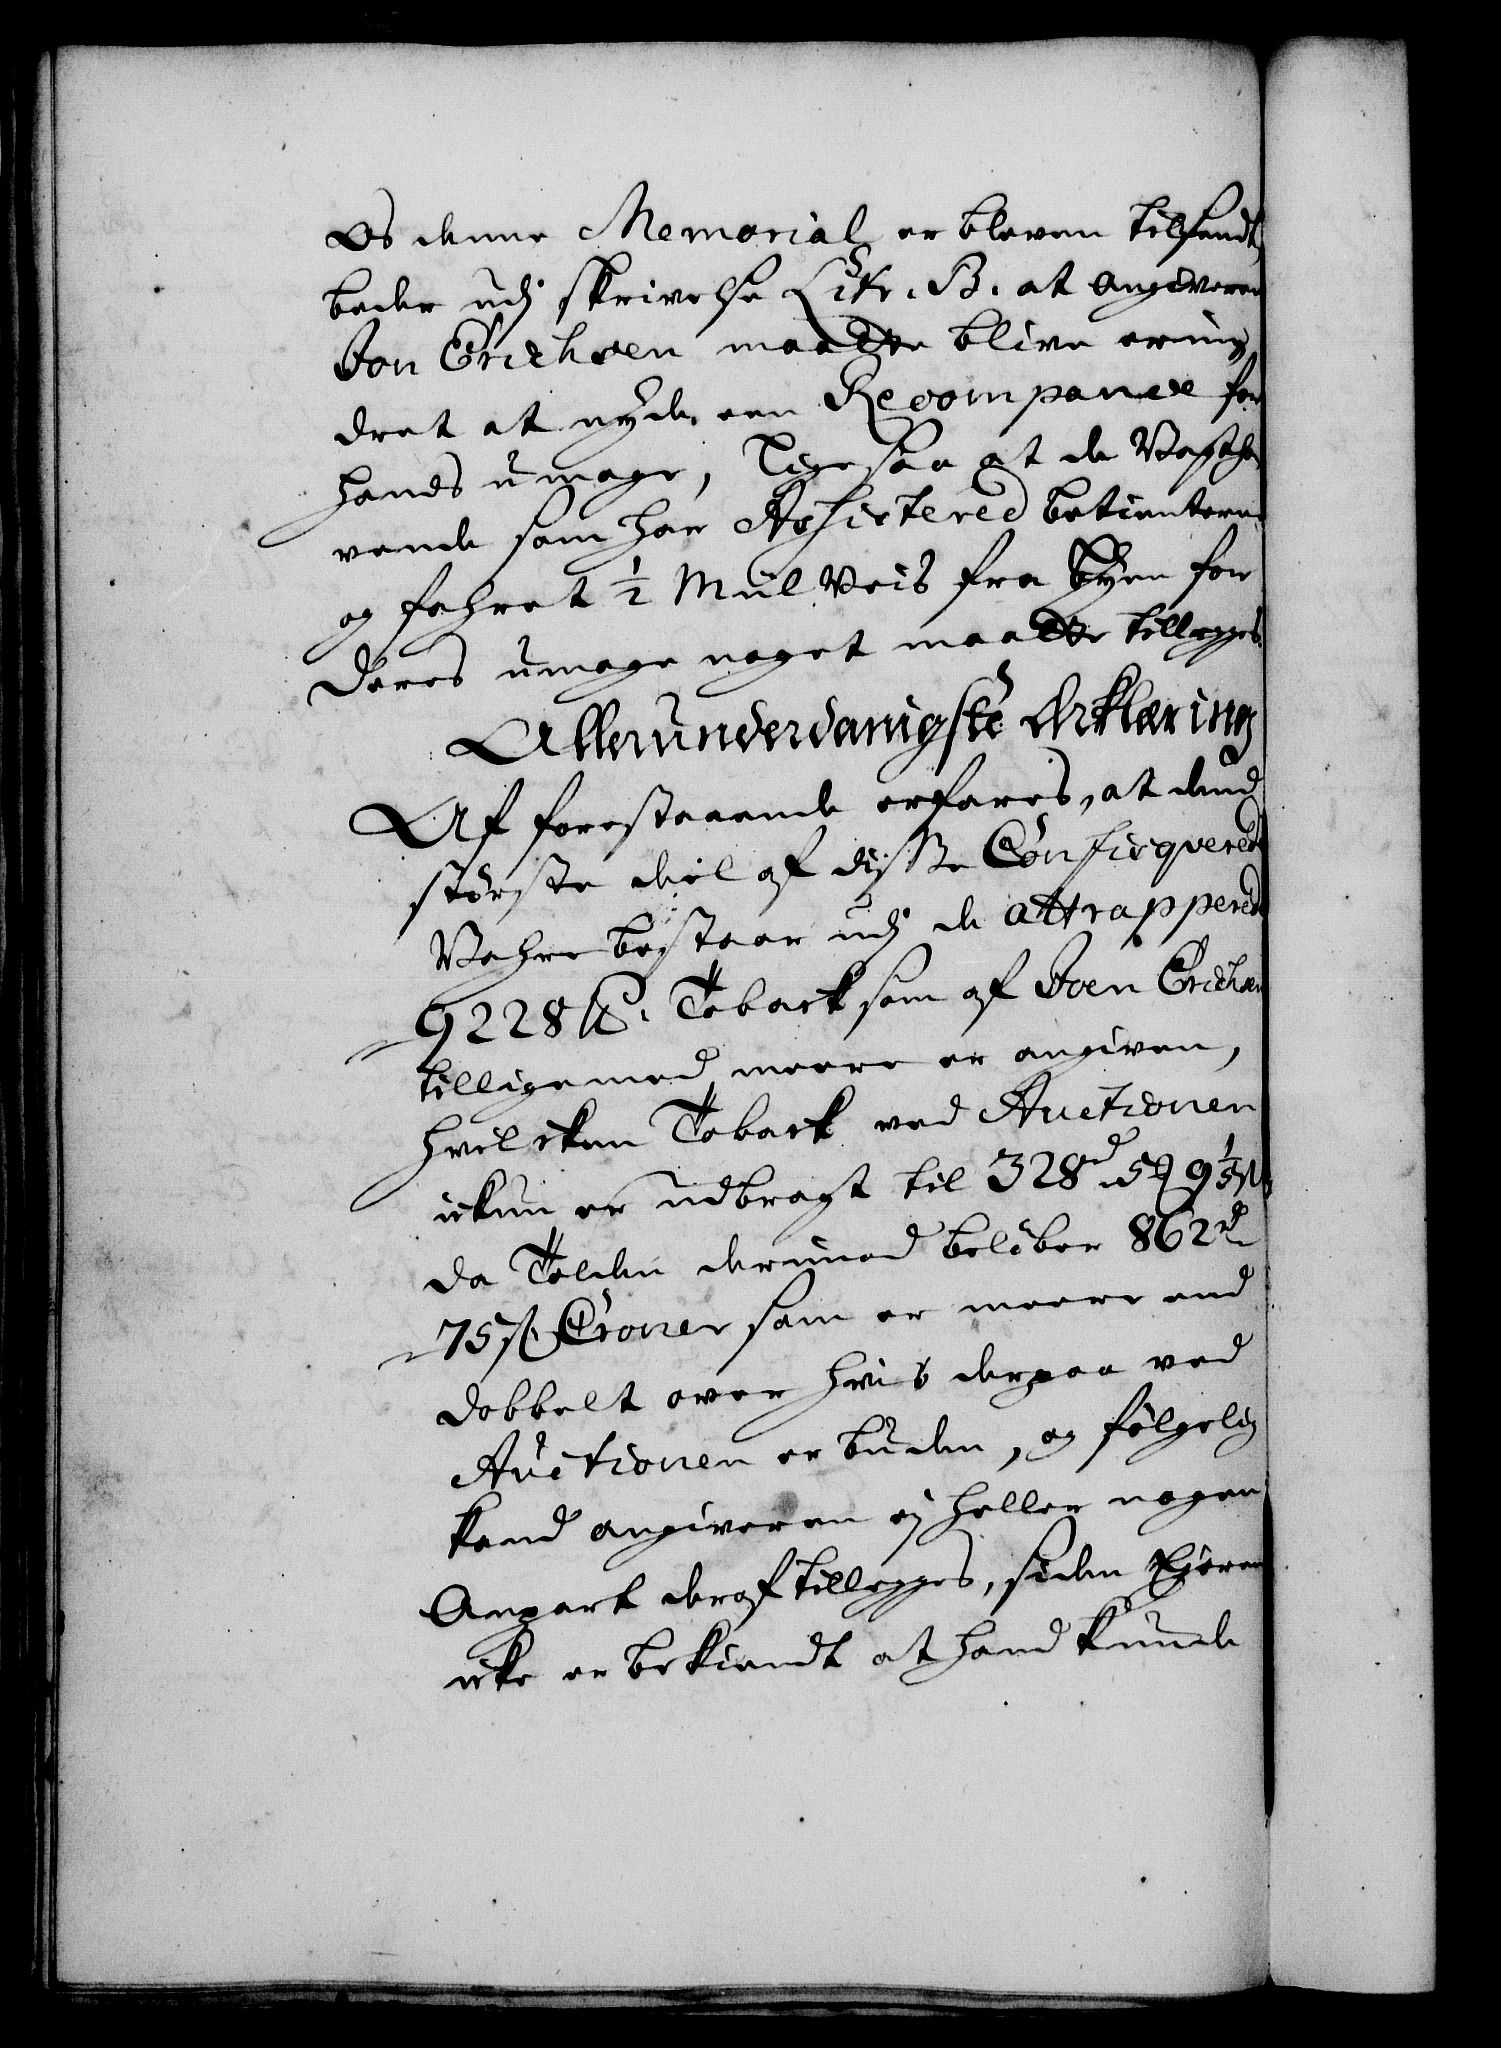 Os denne Memorial er bleven tilsendt,
beder udj skrivelse Litr. B. at angiveren
Jon Erichsen maatte blive erin¬
dret at nyde een Recompance for
hands umage, Ligesaa at de Vagtha¬
vende som har Assistered betienterne
og fahret ½ Mill Veis fra Byen for
deres umage noget maatte tillegges.
Allerunderdanigste Erklæring
Af forestaaende erfares, at dend
største deel af disse Confisqverede
Vahre bestaar udj de attrapperede
9228 ℔. Toback som af Joen Erichsen
tilligemed meere er angiven,
hvilcken Toback ved Auctionen
ickun er udbragt til 328 rd 5 ꝶ 9⅕ ß
da Tolden derimod beløber 862 rd
75 ß Croner som er meere end
dobbelt over hvis derpaa ved
Auctionen er buden, og følgelig
kand angiveren ej heller nogen
Anpart deraf tillegges, siden Ejeren
icke er bekiendt at hand kunde